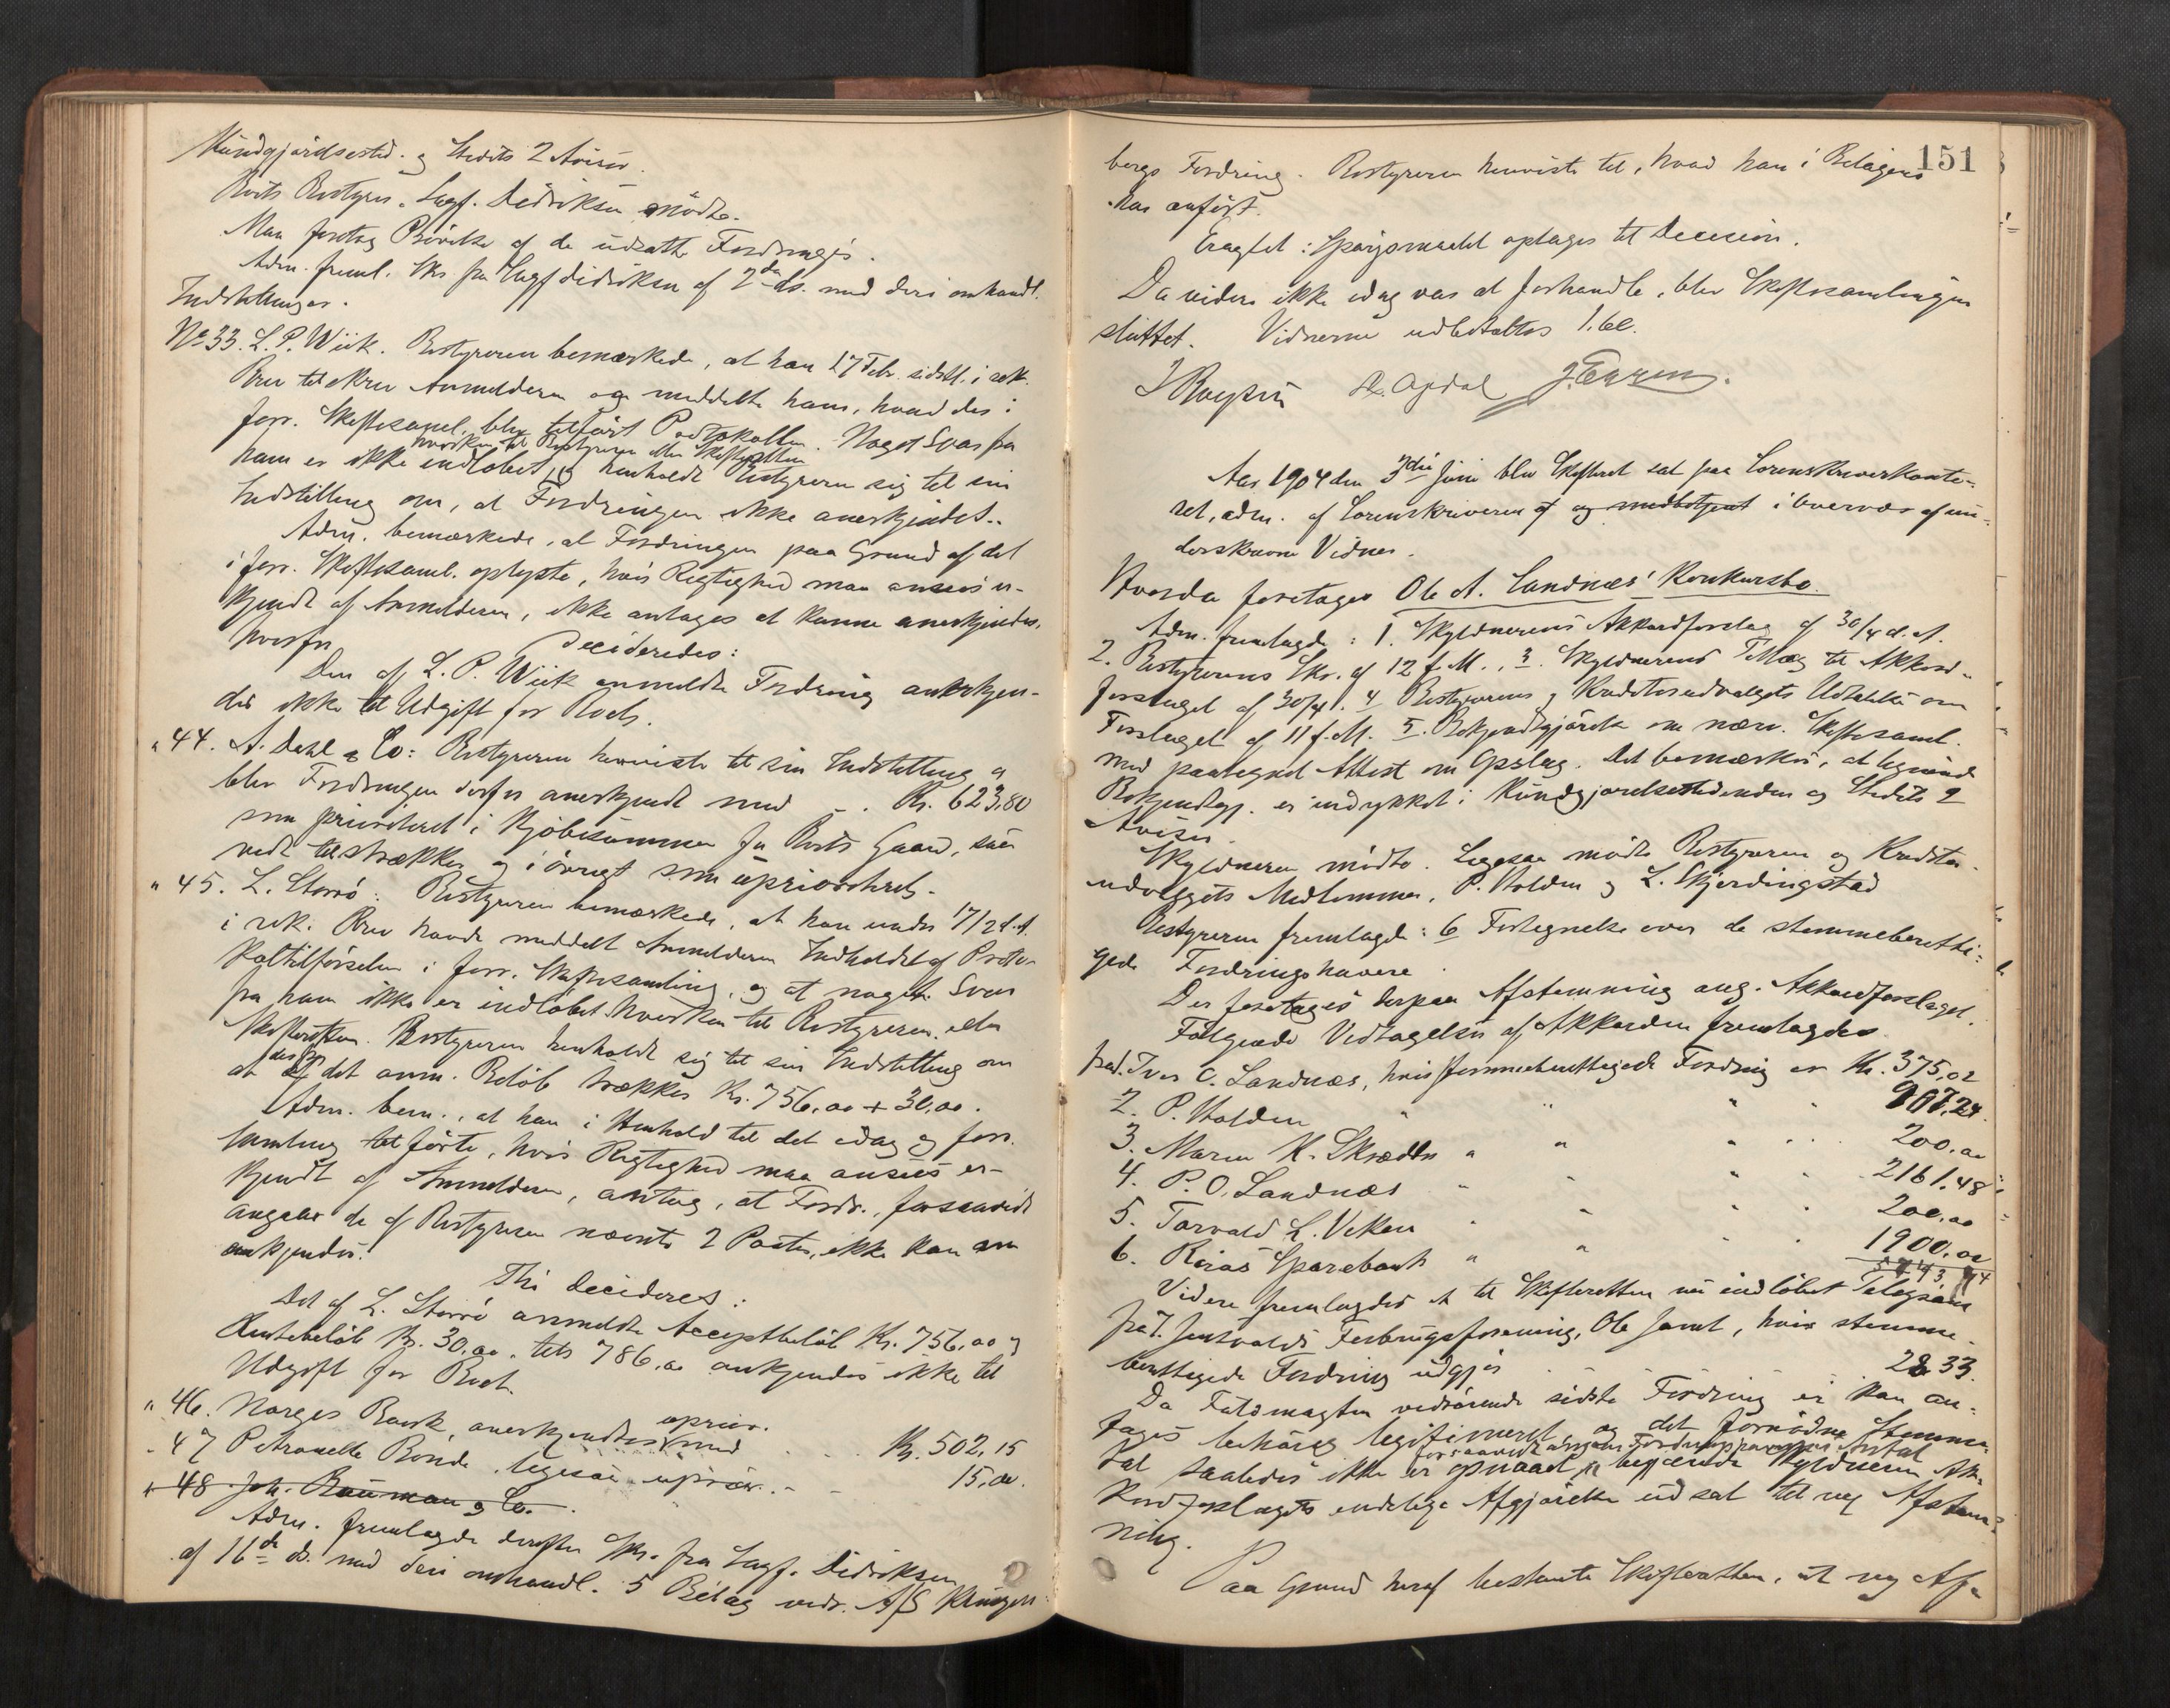 Kundgjørelsestid. og Stedets 2 Aviser.
Boets Bestyrer, Sagf. Didriksen mødte.
Man foretog Prøvelse af de udsatte Fordringer.
Adm. freml. Skr. fra Sagf Didriksen af 2den ds. med deri omhandl.
Indstillinger.
No 33. L. P. Wiik. Bestyreren bemærkede, at han 17 Febr. sidstl. i rek.
Brev tilskrev Anmelderen og meddelte ham, hvad der i
forr. Skiftesaml. blev tilført Protokollen. Noget Svar fra
hverken til Bestyreren eller Skifteretten
ham er ikke indløbet, og henholdt Bestyreren sig til sin
Indstilling om, at Fordringen ikke anerkjendes.
Adm. bemærkede, at Fordringen paa Grund af det
i forr. Skiftesaml. oplyste, hvis Rigtighed maa ansees er-
kjendt af Anmelderen, ikke antages at kunne anerkjendes,
hvorfor
decideredes:
Den af L. P. Wiik anmeldte Fordring anerkjen-
des ikke til Udgift for Boet.
" 44. A. Dahl & Co: Bestyreren henviste til sin Indstilling og
blev Fordringen derfor anerkjendt med - . Kr. 623,80
som prioriteret i Kjøbesummen for Boets Gaard, saa
vidt tilstrækker og i øvrigt som uprioriteret.
" 45. L. Storrø: Bestyreren bemærkede, at han under 17/2 d. A.
i rek. Brev havde meddelt Anmelderen Indholdet af Proto-
koltilførselen i forr. Skiftesamling, og at noget Svar
fra ham ikke er indløbet hverken til Bestyreren eller
Skifteretten. Bestyreren henholdt sig til sin Indstilling om
at det anm. Beløb trækkes Kr. 756,00 + 30,00.
Adm. bem., at han i Henhold til det idag og forr.
Samling tilførte, hvis Rigtighed maa ansees er-
kjendt af Anmelderen, antog, at Fordr., forsaavidt
angaar de af Bestyreren nævnte 2 Poster, ikke kan an
erkjendes.
Thi decideres:
Det af L. Storrø anmeldte Acceptbeløb Kr. 756,00 og
Rentebeløb Kr. 30,00, tils 786,00 ankjendes ikke til
Udgift for Boet.
uprior.
" 46. Norges Bank, anerkjendtes med - - Kr. 502,15
- 47 Petronelle Bonde, ligesaa uprior. - - 15,00.
" 48 Joh. Bauman & Co.
Adm. fremlagde derefter Skr. fra Sagf. Didriksen
af 16de ds. med deri omhandl. 5 Bilag vedr. A/S Klingen-
151
bergs Fordring. Bestyreren henviste til, hvad han i Bilagene
har anført.
Eragtet: Spørgsmaalet optages til Decision.
Da videre ikke idag var at forhandle, blev Skiftesamlingen
sluttet. Vidnerne udbetaltes 1.60.
Aar 1904 den 3die Juni blev Skifteret sat paa Sorenskriverkonto-
ret, adm. af Sorenskriveren og medbetjent i Overvær af un-
derskrevne Vidner.
Hvorda foretages Ole A. Sandnæs' Konkursbo.
Adm. fremlagde: 1. Skyldnerens Akkordforslag af 30/4 d. A.
2. Bestyrerens Skr. af 12 f. M., 3. Skyldnerens Tillæg til Akkord-
forslaget af 30/4. 4 Bestyrerens og Kreditorudvalgets Udtalelse om
Forslaget af 11 f. M. 5. Bekjendtgjørelse om nærv. Skiftesaml.
med paategnet Attest om Opslag. Det bemærkes, at lignende
Bekjendtgj. er indrykket i Kundgjørelsestidenden og Stedets 2
Aviser.
Skyldneren mødte. Ligesaa mødte Bestyreren og Kreditor-
udvalgets Medlemmer, P. Holden og L. Skjerdingstad
Bestyreren fremlagde: 6 Fortegnelse over de stemmeberetti-
gede Fordringshavere.
Der foretages derpaa Afstemning ang. Akkordforslaget.
Følgende Vedtagelser af Akkorden fremlagdes
fra 1. Iver O. Sandnæs, hvis stemmeberettigede Fordring er Kr. 375,02
2. P. Holden " " " 907,24
3. Maren K. Skrædder " " " 200,00
4. P. O. Sandnæs " " " 2161,48
5. Torvald L. Veken " " " 200,00
6. Røraas Sparebank " " " 1900,00
5743,74
Videre fremlagdes et til Skifteretten nu indløbet Telegram
fra 7. Forbrugsforening, Ole , hvis stemme-
berettigede Fordring udgjør 28,33.
Da Fuldmagten vedrørende sidste Fordring ei kan an-
tages behørig legitimeret og det fornødne Stemme-
forsaavidt angaar Fordringshavernes Antal
tal saaledes ikke er opnaaet, begjærede Skyldneren Ak-
kordforslagets endelige Afgjørelse udsat til ny Afstem-
ning.
Paa Grund heraf bestemte Skifteretten, at ny Af-